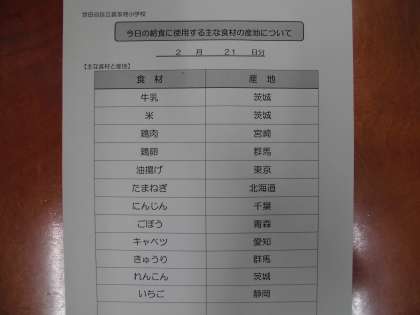 今日の給食に使用する主な食材の産地について
2 月 21 日分
【主な食材と産地】
食材 産地
牛乳 茨城
米 茨城
鶏肉 宮崎
鶏卵 群馬
油揚げ 東京
たまねぎ 北海道
にんじん 千葉
ごぼう 青森
キャベツ 愛知
きゅうり 群馬
れんこん 茨城
いちご 静岡